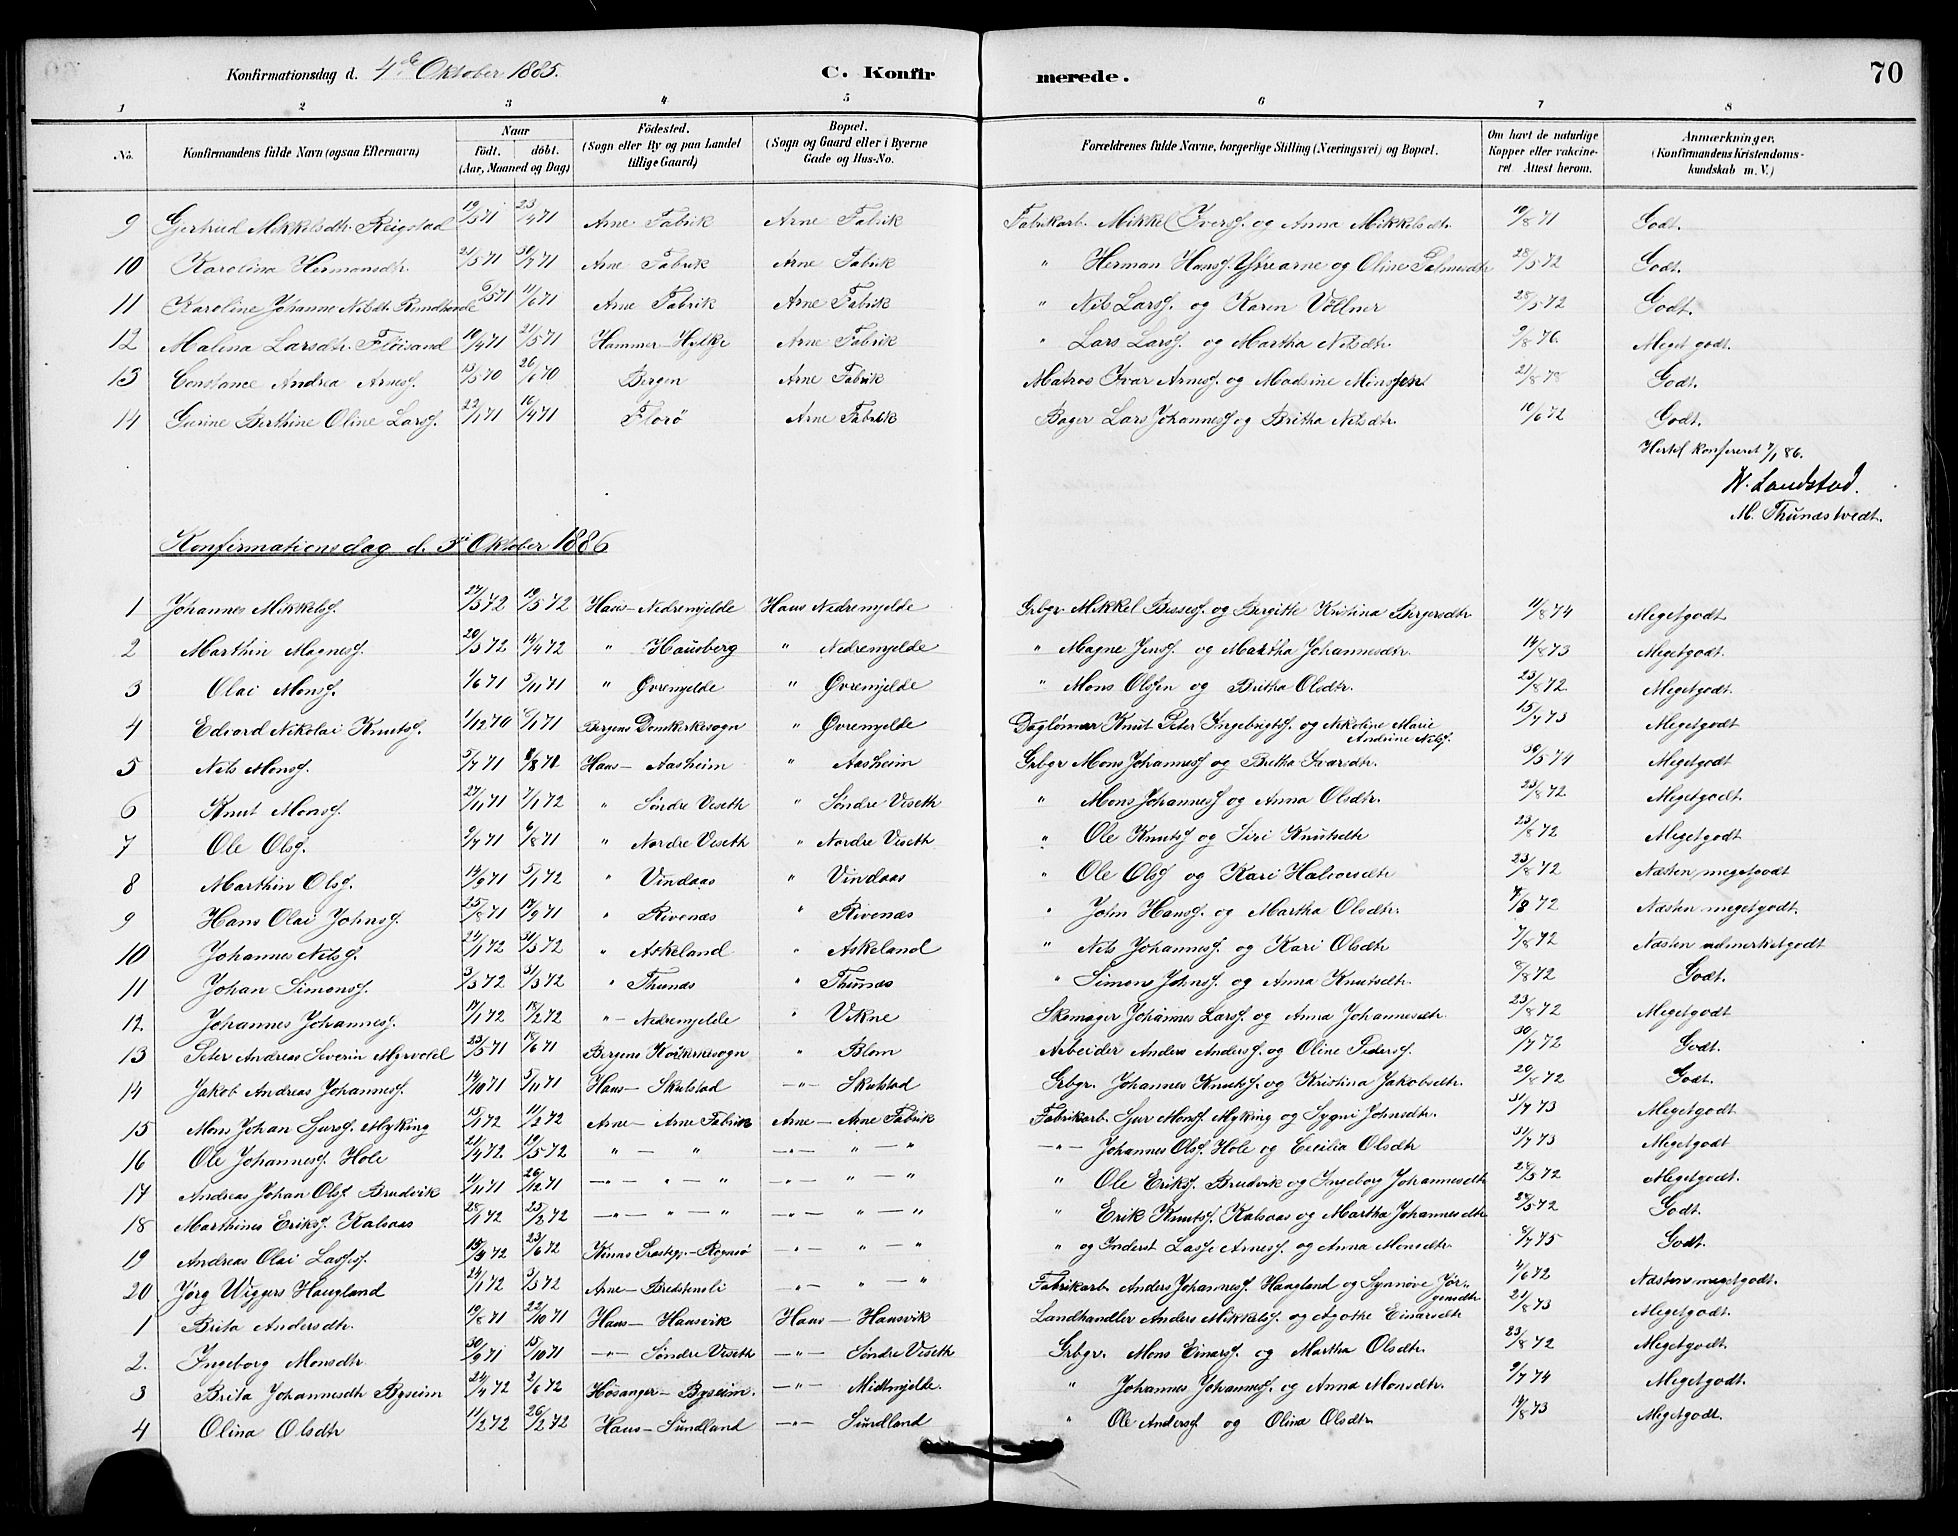 Konfirmationsdag d. 4de Oktober 1885. C. Konfirmerede. 70
1 2 3 4 5 6 7 8
No. Konfirmandens fulde Navn (ogsaa Efternavn) Naar födt. döbt. (Aar, Maaned og Dag) Födested. (Sogn eller By og paa Landet tillige Gaard) Bopæl. (Sogn og Gaard eller i Byerne Gade og Hus-No. Forældrenes fulde Navne, borgerlige Stilling (Næringsvei) og Bopæl. Om havt de naturlige Kopper eller vakcineret. Attest herom. Anmærkninger, (Konfirmandens Kristendomskundskab m. V.)
9 Gertrud Mikkelsdtr. Reigstad 19/5 71 23/4 71 Arne Fabrik Arne Fabrik Fabrikarb. Mikkel Iversf. og Anna Mikkelsdtr. 19/8 71 Godt.
10 Karolina Hermansdtr. 21/5 71 30/7 71 Arne Fabrik Arne Fabrik " Herman Hansf. Ytrearne og Oline 28/5 72 Godt.
11 Karoline Johanne Nilsdt. 6/5 71 11/6 71 Arne Fabrik Arne Fabrik " Nils Larsf. og Karen Vollner 28/5 72 Godt.
12 Malena Larsdtr. Fløisand 19/4 71 21/5 71 Hammer-Hylkje Arne Fabrik " Lars Larsf. og Martha Nilsdtr. 9/8 76. Meget godt.
13 Constance Andrea Arnesf. 13/5 70 26/6 70 Bergen Arne Fabrik Matros Ivar Arnesf. og Madsine Monssen 21/8 78 Godt.
14 Gurine Berthine Oline Larsf. 22/1 71 16/4 71 Florø Arne Fabrik Bager Lars Johannesf. og Britha Nilsdtr. 10/6 72 Godt.
Hertil konfereret 7/1 86.
N. Landstad.
M. Thunestvedt.
Konfirmationsdag d. 3' Oktober 1886
1 Johannes Mikkelsf. 27/3 72 19/5 72 Haus-Nedremjelde Haus Nedremjelde Grbgr. Mikkel Bessesf. og Bergitte Kristina Bergersdtr 11/8 74 Megetgodt.
2 Marthin Magnesf. 20/3 72 14/4 72 " Hausberg " Nedremjelde " Magne Jensf. og Martha Johannesdtr. 14/8 73 Megetgodt.
3 Olai Monsf. 1/6 71 5/11 71 " Øvremjelde " Øvremjelde " Mons Olsen og Britha Olsdtr. 23/8 72. Megetgodt.
4 Edvard Nikolai Knutsf. 1/12 70 8/1 71 Bergens Domkirkesogn " Øvremjelde Daglønner Knut Peter Ingebrigtsf. og Nikoline Marie Andrine Nilsf. 15/7 73 Megetgodt
5 Nils Monsf. 5/7 71 6/8 71 Haus- Aasheim " Aasheim Grbgr Mons Johannesf og Britha Ivarsdtr. 30/5 74 Megetgodt
6 Knut Monsf. 27/11 71 7/1 72 " Søndre Viseth " Søndre Viseth " Mons Johannesf og Anna Olsdtr. 23/8 72. Megetgodt
7 Ole Olsf. 2/7 71 6/8 71 " Nordre Viseth " Nordre Viseth " Ole Knutsf og Siri Knutsdtr 23/8 72 Megetgodt
8 Marthin Olsf. 14/9 71 5/1 72 " Vindaas " Vindaas " Ole Olsf og Kari Halvorsdtr 23/8 72 Næsten megetgodt
9 Hans Olai Johnsf. 25/8 71 17/9 71 " Rivenæs " Rivenæs " John Hansf. og Martha Olsdtr. 7/8 72 Næsten megetgodt.
10 Johannes Nilsf. 24/1 72 31/3 72 " Askeland " Askeland " Nils Johannesf. og Kari Olsdtr 7/8 72 Næsten udmerketgodt
11 Johan Simonsf. 3/3 72 31/3 72 " Thunæs " Thunæs " Simons Johnsf. og Anna Knutsdtr. 8/8 72 Godt.
12. Johannes Johannesf. 17/1 72 18/2 72 " - Nedremjelde " Vikne Skomager Johannes Larsf. og Anna Johannesdtr. 23/8 72 Megetgodt
13 Peter Andreas Severin Myrvold 23/5 71 18/6 71 Bergens Korskirkesogn " Blom Arbeider Anders Andersf. og Oline Pedersf. 30/7 72 Godt.
14 Jakob Andreas Johannesf. 14/10 71 5/11 71 Haus- Skulstad -"- Skulstad Grbgr. Johannes Knutsf. og Kristina Jakobsdtr. 20/8 72 Godt.
15 Mons Johan Sjursf. Myking 15/1 72 11/2 72 Arne- Arne Fabrik Arne-Arne Fabrik Fabrikarb. Sjur Monsf. Myking og Sygni Johnsdtr. 31/7 73 Megetgodt
16 Ole Johannesf. Hole 21/4 72 19/5 72 " - " -"- " - " -"- Johannes Olsf. Hole og Cecilia Olsdtr 31/7 73 Megetgodt
17 Andreas Johan Olsf Brudvik 11/11 71 26/12 71 -"- " - " -"- " - " " Ole Eriksf. Brudvik og Ingeborg Johannesdtr 28/5 72 Megetgodt.
18 Marthines Eriksf. Kalsaas 28/1 72 25/2 72 -"- " - " -"- " - " " Erik Knutsf. Kalsaas og Martha Johannesdtr 29/5 72 Godt.
19 Andreas Olai Lassesf. 15/4 72 23/6 72 Kinns Prestgj.-Rognsø -"- " - " " og Inderst Lasse Arnesf. og Anna Monsdtr. 8/7 75 Godt.
20 Jørg Wiggers Haugland 24/1 72 3/3 72 Arne-Bredstenli -"- " - " Fabrikarb Anders Johannesf. Haugland og Synnøve Jørgensdtr. 4/6 72 Næsten megetgodt.
1 Brita Andersdtr. 19/8 71 22/10 71 Haus- Hausvik Haus - Hausvik Landhandler Anders Mikkelsf. og Agothe Einarsdtr 21/8 73 Megetgodt.
2. Ingeborg Monsdtr. 30/9 71 15/10 71 -"- Søndre Viseth -"- Søndre Viseth Grbgr. Mons Einarsf. og Martha Olsdtr. 23/8 72 Megetgodt
3 Brita Johannesdtr Byseim 24/4 72 2/6 72 Hosanger- Byseim. -"- Midtmjelde. " Johannes Johannesf. og Anna Monsdtr. 9/7 74 Megetgodt.
4 Olina Olsdtr 11/2 72 26/2 72 Haus-Sundland -"- Sundland " Ole Andersf og Olina Olsdtr. 14/8 73 Megetgodt.